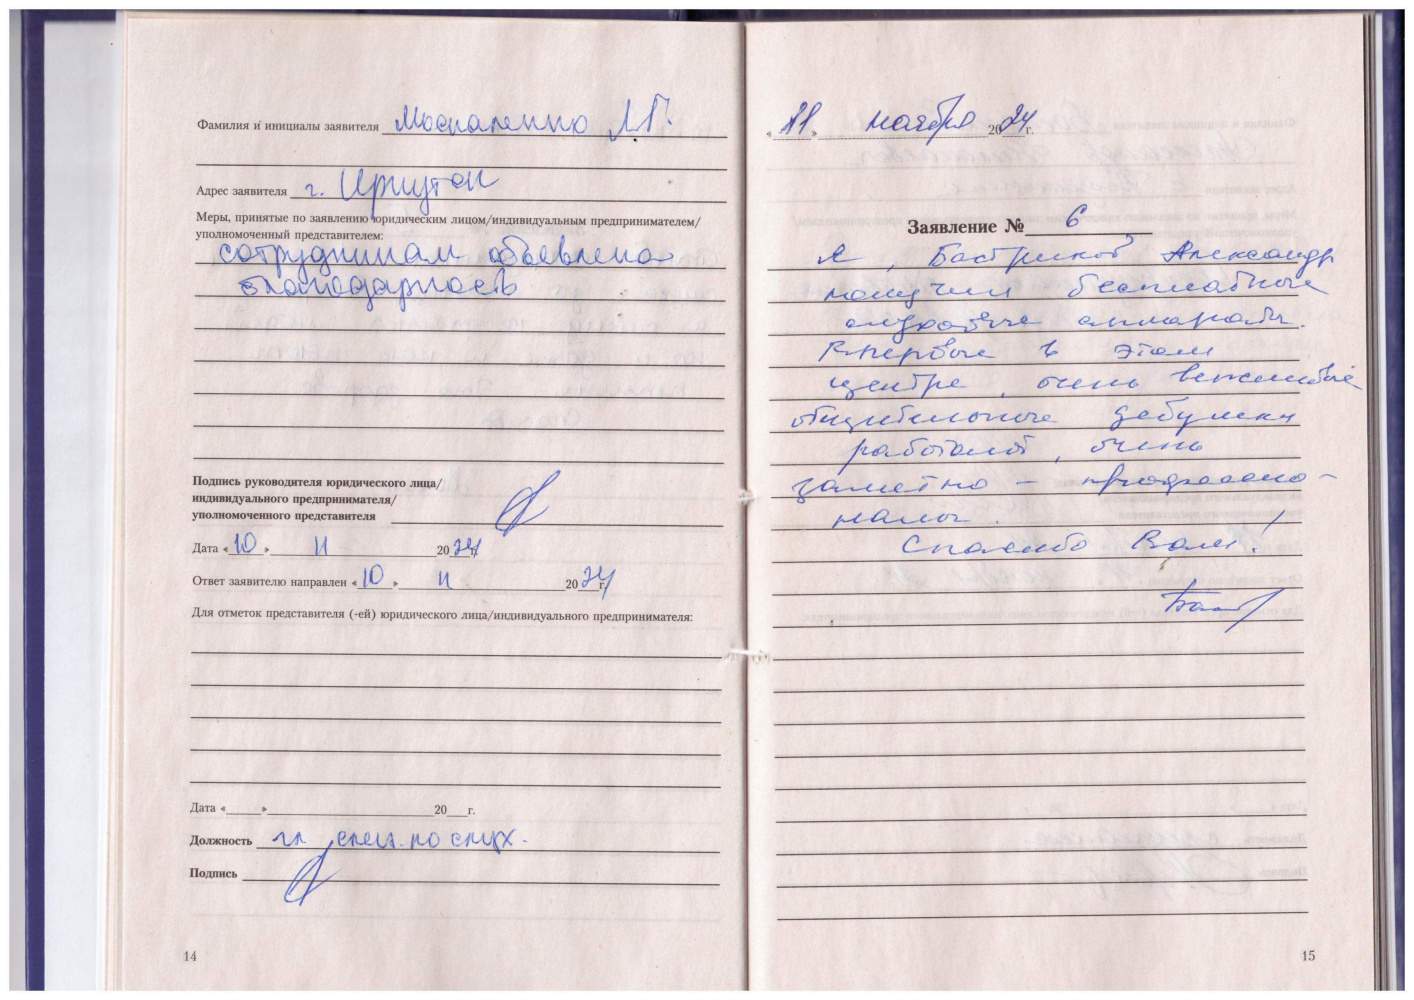 Фамилия и инициалы заявителя Москаленко Л.Г.
Адрес заявителя г. Иркутск
Меры, принятые по заявлению юридическим лицом/индивидуальным предпринимателем/
уполномоченный представителем:
сотрудникам объявлена
благодарность
Подпись руководителя юридического лица/
индивидуального предпринимателя/
уполномоченного представителя
Дата «10» 11 2024г.
Ответ заявителю направлен «10» 11 2024г.
Для отметок представителя (-ей) юридического лица/индивидуального предпринимателя:
Дата «____»____ 20__г.
Должность гл. спец. по слух.
Подпись
14
«11» ноября 2024г.
Заявление № 6
Я, Бастриков Александр
получил бесплатные
слуховые аппараты.
Впервые в этом
центре, очень вежливые
общительные девушки
работают, очень
заметно – професcио-
налы.
Спасибо Вам!
15